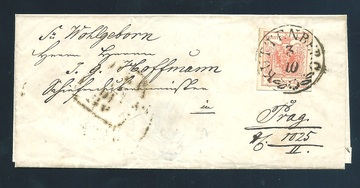 Sr Wohlgeborn
Herrn Herrn
J. G. Hoffmann
in
Prag.
1025
II.
KUTTENBERG
3
10